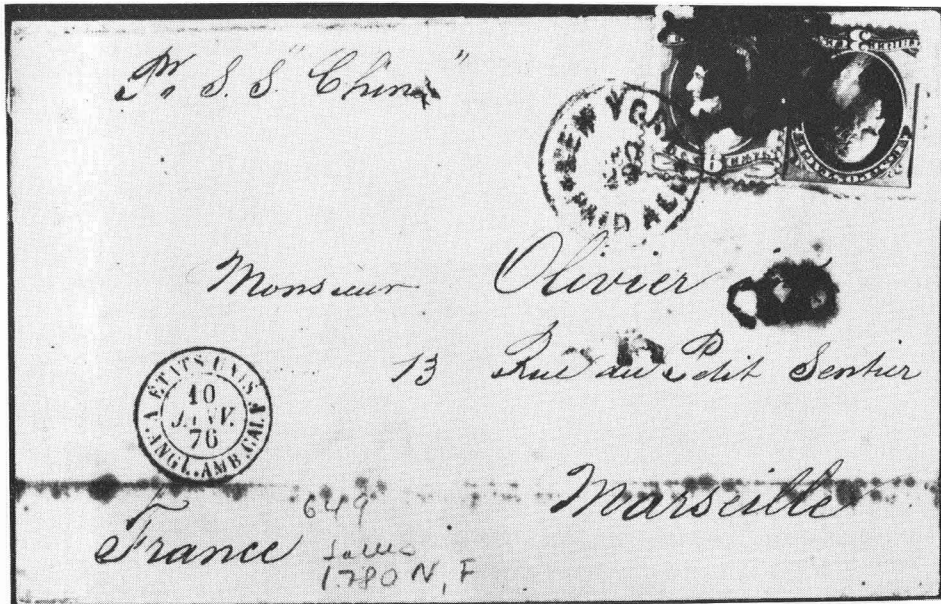 Pr S. S. "China"
NEW YORK
PAID ALL
6
Monsieur Olivier
13 Rue du Petit Sentier
ETATS UNIS
10
JANV.
76
ANGL. AMB. CAL.
Marseille
649
France
Salles
1780 N, F